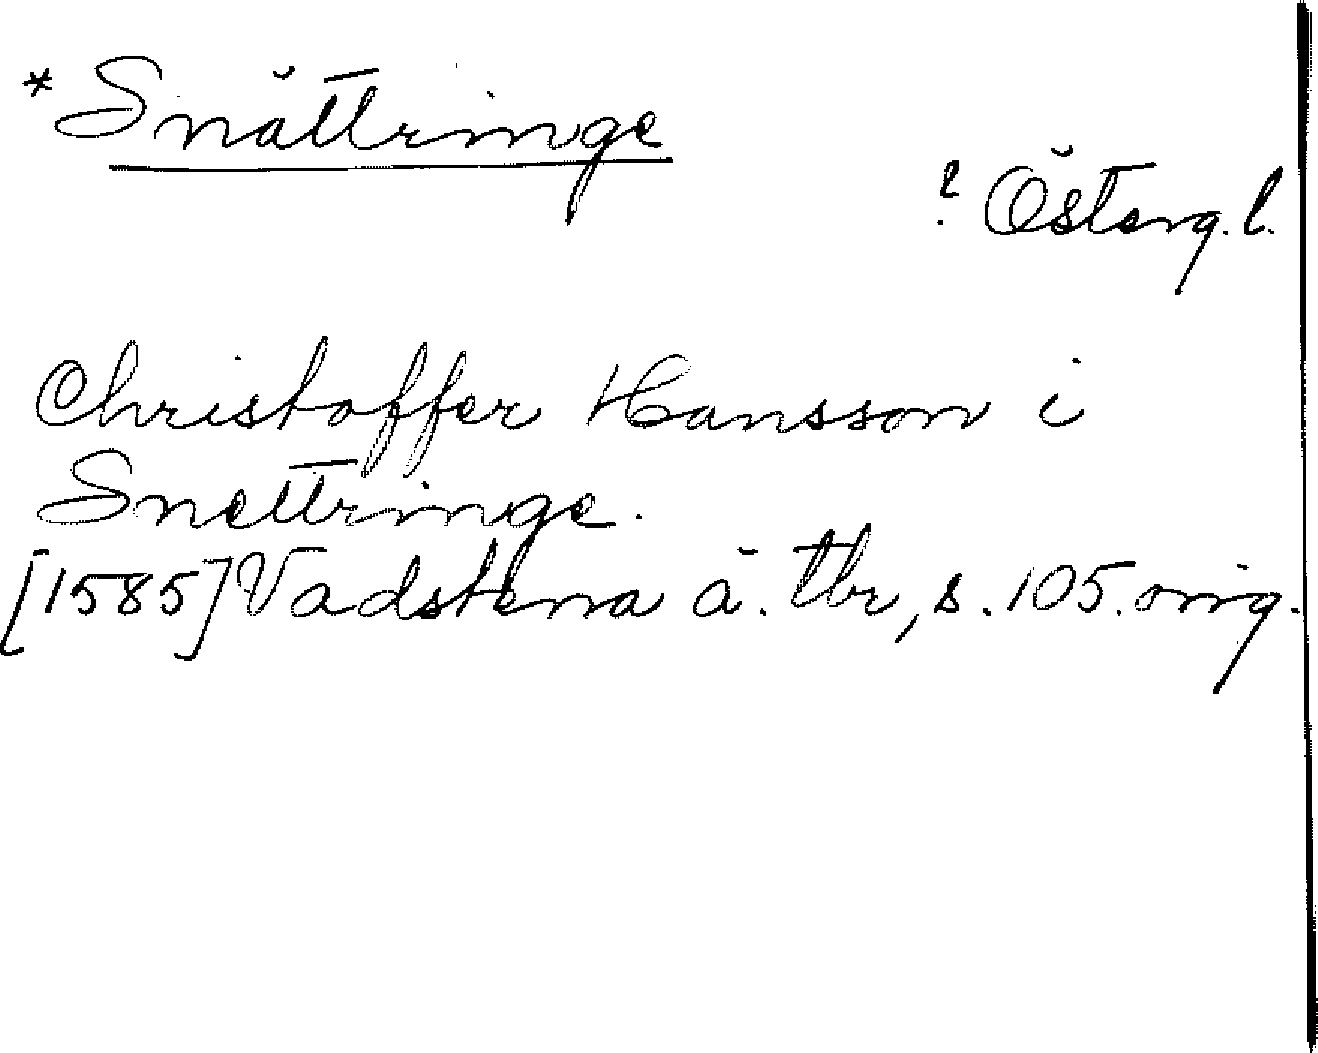 * Snättringe
? Österg. l.
Christoffer Hansson i
Snettringe.
[1585] Vadstena ä. tbr, s. 105. orig.